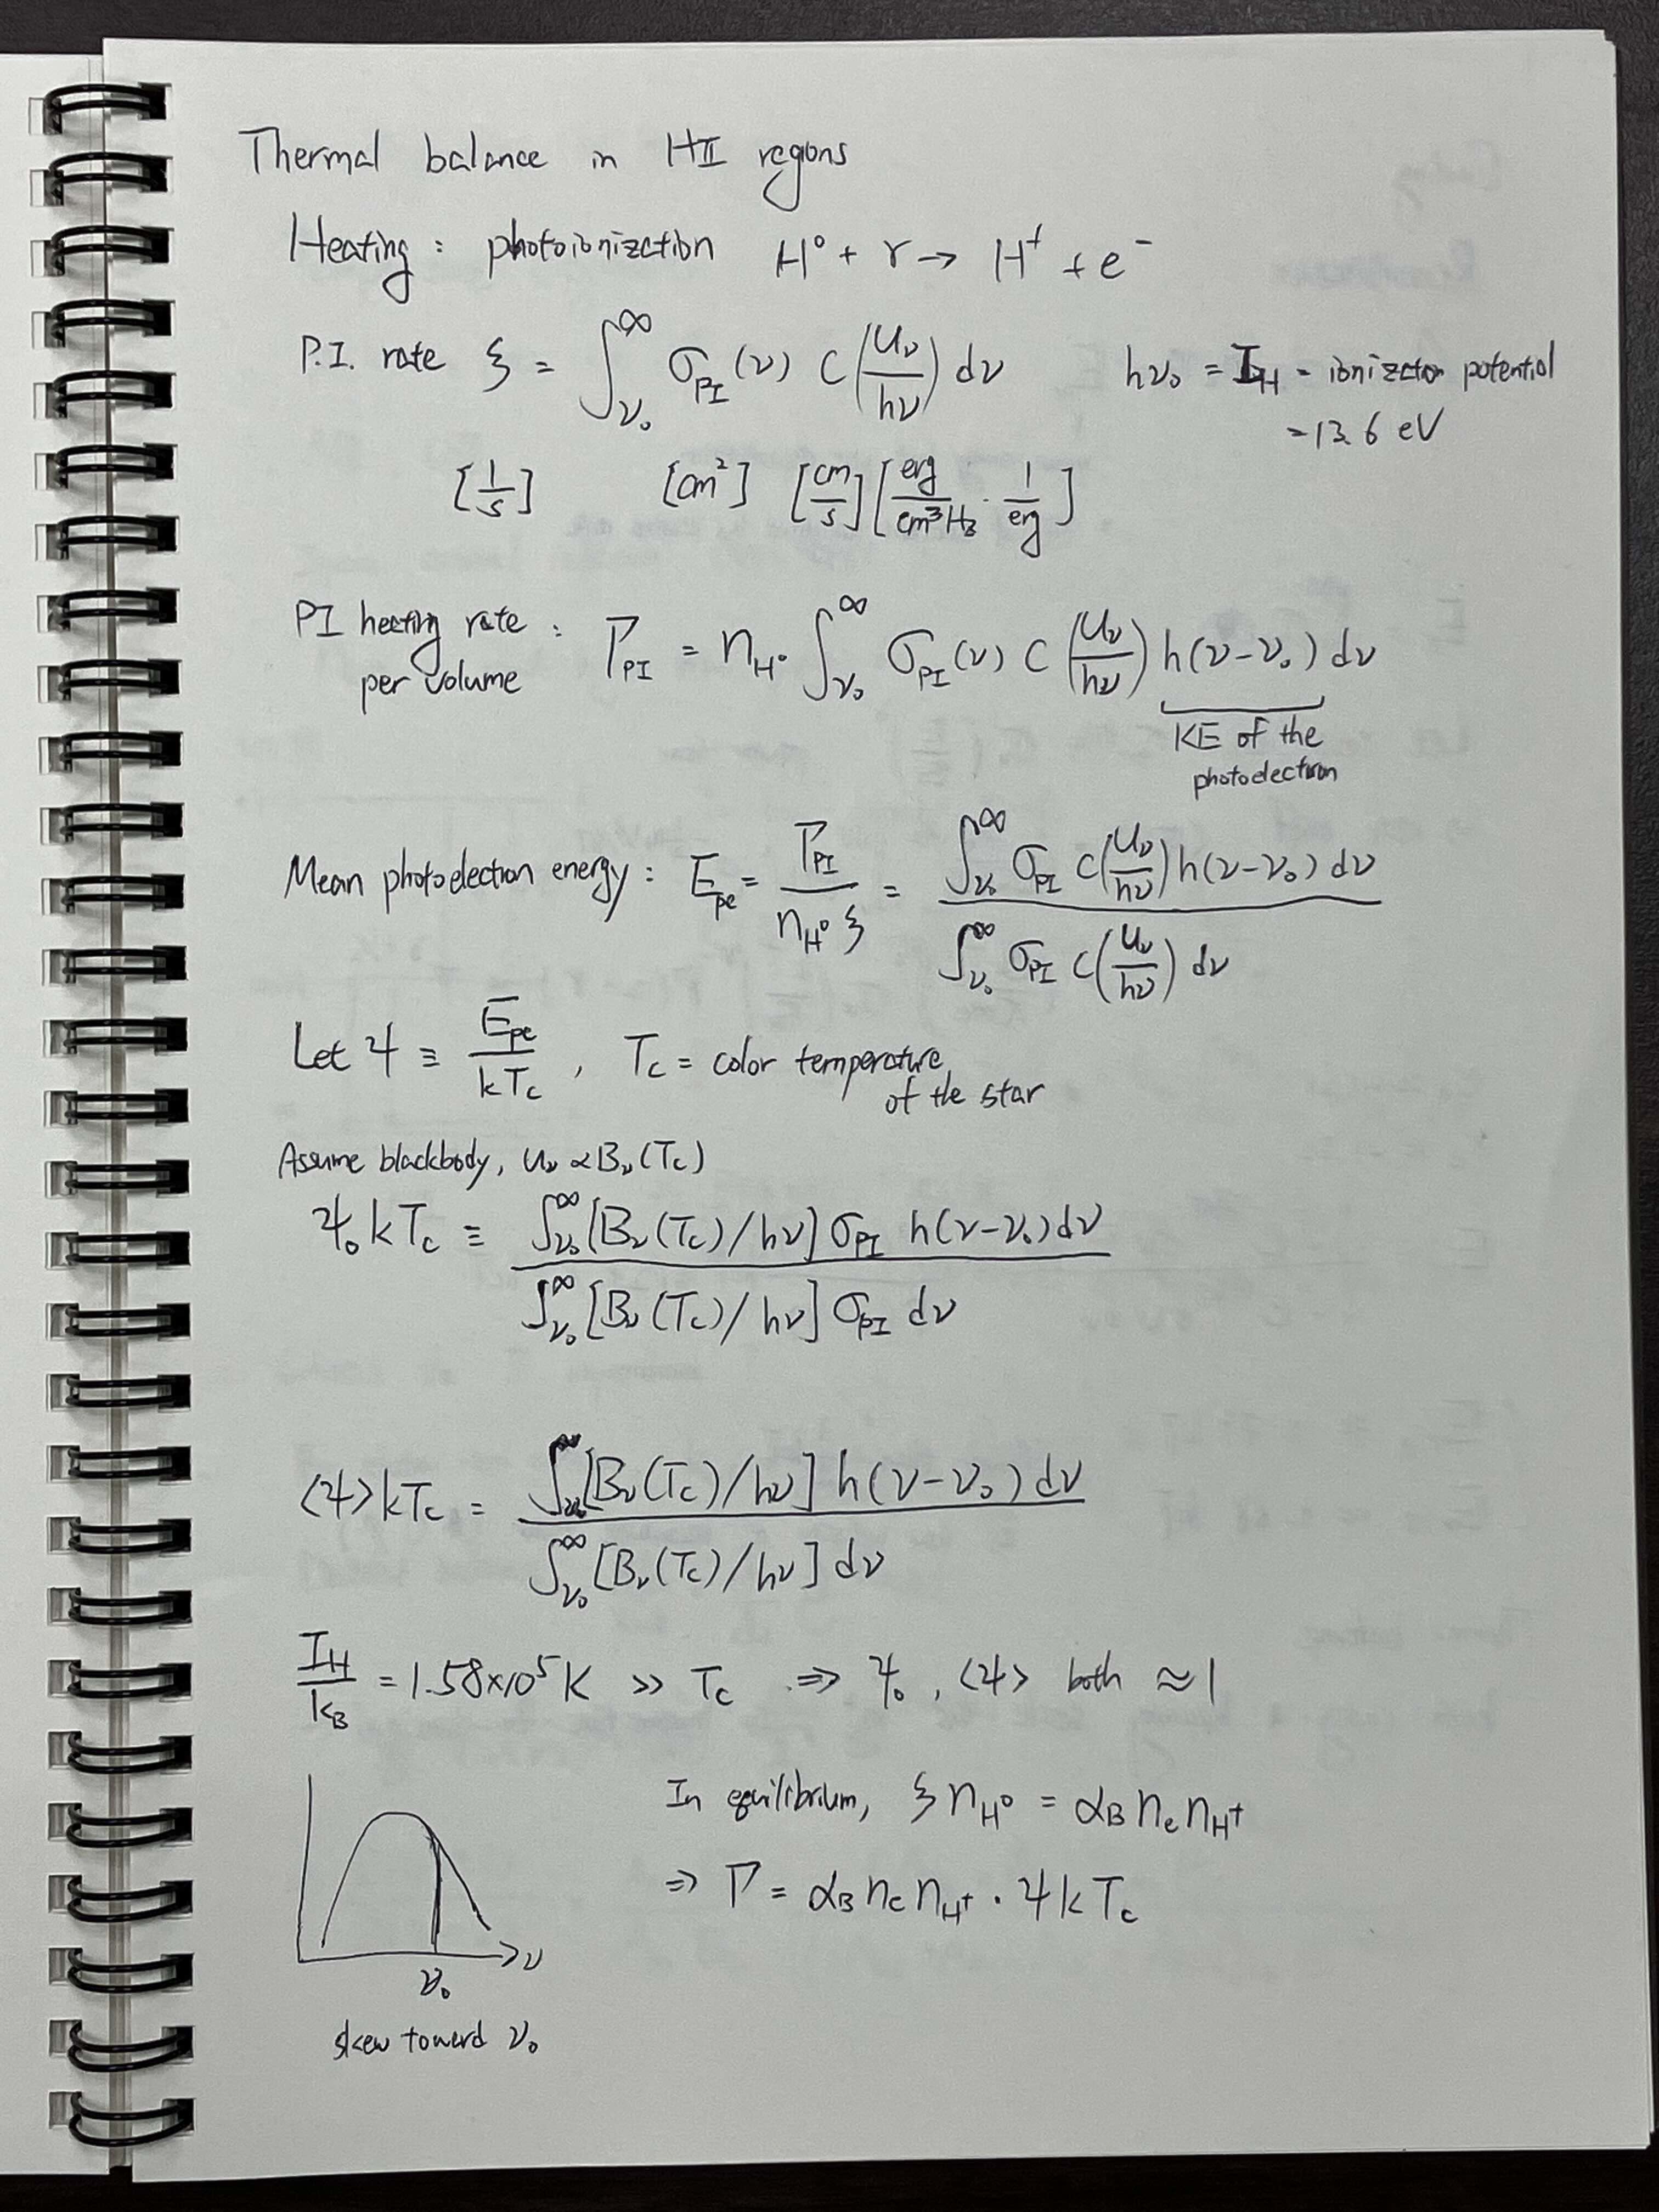 Thermal balance in HII regions
Heating : photoionization H⁰ + γ → H⁺ + e⁻
P.I. rate ξ = ∫_{ν₀}^{∞} σ_PI (ν) c (u_ν/hν) dν hν₀ = I_H = ionization potential
= 13.6 eV
[1/s] [cm²] [cm/s] [erg/cm³Hz · 1/erg]
PI heating rate : Γ_PI = n_H⁰ ∫_{ν₀}^{∞} σ_PI (ν) c (u_ν/hν) h(ν-ν₀) dν
per volume
KE of the
photoelectron
Mean photoelectron energy : E_pe = Γ_PI / n_H⁰ ξ = ∫_{ν₀}^{∞} σ_PI c (u_ν/hν) h(ν-ν₀) dν / ∫_{ν₀}^{∞} σ_PI c (u_ν/hν) dν
Let ψ ≡ E_pe / kT_c , T_c = color temperature
of the star
Assume blackbody, u_ν ∝ B_ν (T_c)
ψ₀ kT_c ≡ ∫_{ν₀}^{∞} [B_ν (T_c)/hν] σ_PI h(ν-ν₀) dν / ∫_{ν₀}^{∞} [B_ν (T_c)/hν] σ_PI dν
⟨ψ⟩ kT_c = ∫_{ν₀}^{∞} [B_ν (T_c)/hν] h(ν-ν₀) dν / ∫_{ν₀}^{∞} [B_ν (T_c)/hν] dν
I_H / k_B = 1.58×10⁵ K >> T_c ⇒ ψ₀ , ⟨ψ⟩ both ≈ 1
In equilibrium, ξ n_H⁰ = α_B n_e n_H⁺
⇒ Γ = α_B n_e n_H⁺ · ψ k T_c
ν
ν₀
skew toward ν₀